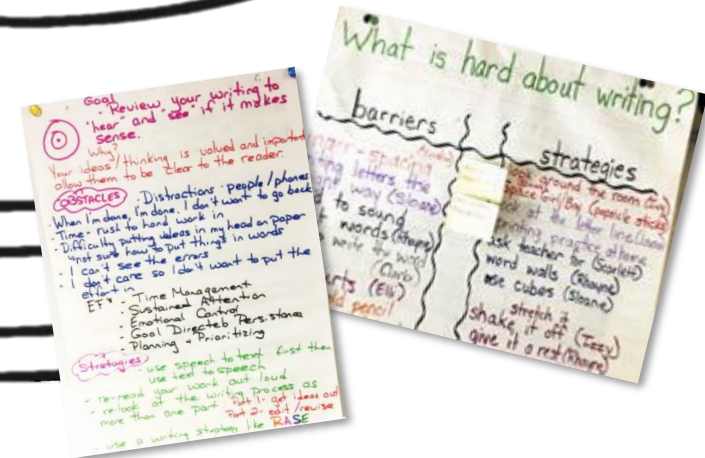 Goal
- Review your writing to
"hear" and "see" if it makes
sense.
Why?
Your ideas/thinking is valued and important
allow them to be clear to the reader.
OBSTACLES - Distractions - people/phones
- When I'm done, I'm done. I don't want to go back
- Time - rush to hand work in
- Difficulty putting ideas in my head on paper
- not sure how to put things in words
- I can't see the errors
- I don't care so I don't want to put the
effort in
EF's - Time Management
- Sustained Attention
- Emotional Control
- Goal Directed Persistance
- Planning + Prioritizing
Strategies
- use speech to text first then
use text to speech
- re-read your work out loud
- relook at the writing process as
more than one part Part 1- get ideas out
Part 2- edit/revise
- use a writing strategy like RASE
What is hard about writing?
barriers
strategies
spacing
letters the
way (Sloane)
to sound
words (Rhayne)
write the word
(Clark)
(Elli)
pencil
around the room
Girl/Boy (popsicle sticks)
at the letter line
printing practice at home
ask teacher for (Scarlett)
word walls (Rhayne)
use cubes (Sloane)
stretch it
shake it off (Izzy)
give it a rest (Rhayne)